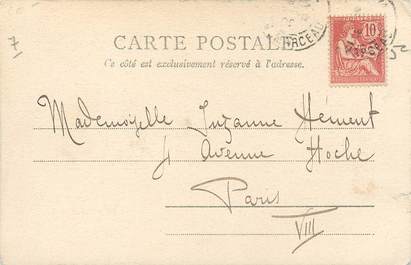 CARTE POSTALE
Ce côté est exclusivement réservé à l'adresse.
10
Mademoiselle Suzanne Hément
4 Avenue Hoche
Paris
VIII